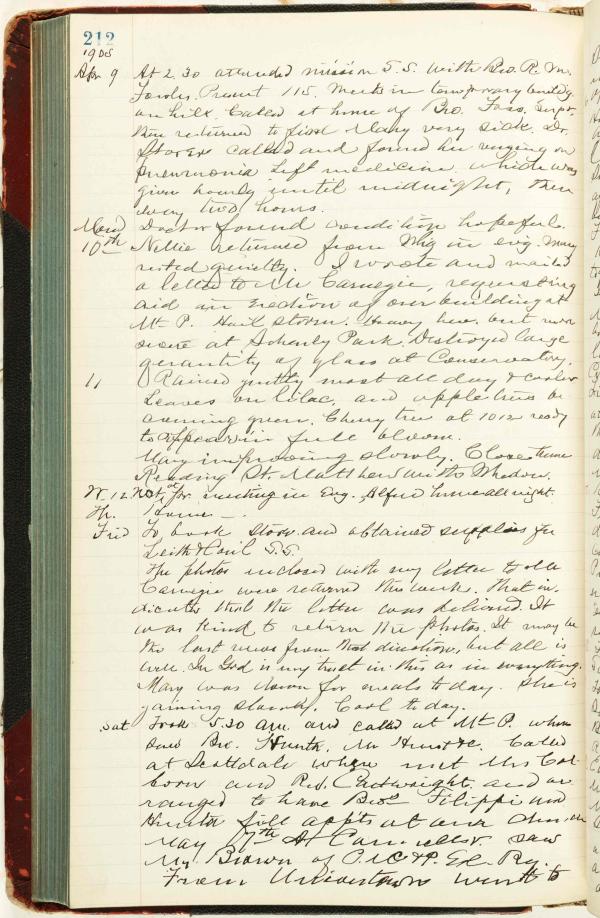 212
1905
Apr 9 At 2.30 attended mission S.S. with Bro. R. M.
Fowler. Present 115. Meets in temporary build'g
on hill. Called at home of Bro. Foss, Supt.
then returned to find Mary very sick. Dr.
Storer called and found her verging on
pneumonia left medicine which was
given hourly until midnight, then
every two hours.
Mond Doctor found condition hopeful.
10th Nellie returned from in evg. Mary
rested quietly. I wrote and mailed
a letter to Mr Carnegie, requesting
aid in erection of our building at
Mt. P. Hail storm. Heavy here, but more
severe at Schenly Park. Destroyed large
quantity of glass at Conservatory.
11 Rained gently most all day & cooler
Leaves on lilac, and apple trees be
coming green. Cherry tree at 1012 ready
to appear in full bloom.
Mary improving slowly. Close home
Reading St. Matthew with
W. 12. Not at Pr. meeting in Evg. home all night.
Th. Home —.
Frid To book store and obtained supplies for
Leith & Hail S.S.
The photos inclosed with my letter to
Carnegie were returned this week. That in-
dicates that the letter was delivered. It
was kind to return the photos. It may be
the last news from that direction, but all is
well. In God is my trust in this as in everything.
Mary was down for meals to day. She is
gaining slowly. Cool to day.
Sat Took 5.30 am. and called at Mt P. where
saw Bro. Hunter, Mr Hurst &c. Called
at Scottdale where met Mrs Col
born and Rev. Cartwright and ar
ranged to have Bros Filippi and
Hunter fill appts at our
May 7th At Connellsv. saw
Mr. Brown of P. McK & P. Ry.
From Uniontown went to